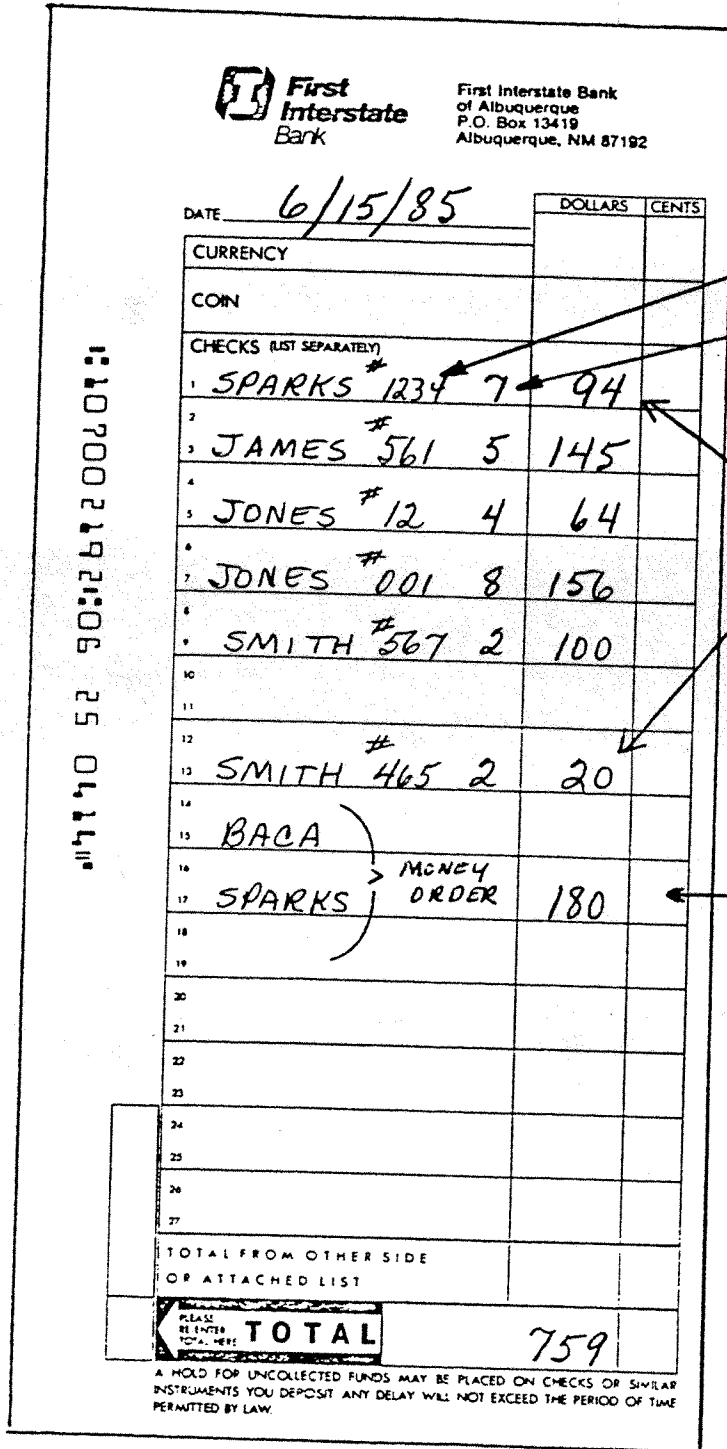 First
Interstate
Bank
First Interstate Bank
of Albuquerque
P.O. Box 13419
Albuquerque, NM 87192
DATE 6/15/85
DOLLARS CENTS
CURRENCY
COIN
CHECKS (LIST SEPARATELY)
1 SPARKS #1234 7 94
2
3 JAMES #561 5 145
4
5 JONES #12 4 64
6
7 JONES #001 8 156
8
9 SMITH #567 2 100
10
11
12
13 SMITH #465 2 20
14
15 BACA
16 MONEY
17 SPARKS > ORDER 180
18
19
20
21
22
23
24
25
26
27
TOTAL FROM OTHER SIDE
OR ATTACHED LIST
PLEASE
RE-ENTER
TOTAL HERE
TOTAL 759
A HOLD FOR UNCOLLECTED FUNDS MAY BE PLACED ON CHECKS OR SIMILAR
INSTRUMENTS YOU DEPOSIT ANY DELAY WILL NOT EXCEED THE PERIOD OF TIME
PERMITTED BY LAW.